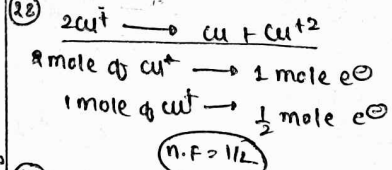 (28)
2Cu⁺ ⟶ Cu + Cu⁺²
2 mole of Cu⁺ ⟶ 1 mole e⊖
1 mole of Cu⁺ ⟶ 1/2 mole e⊖
n.F = 1/2